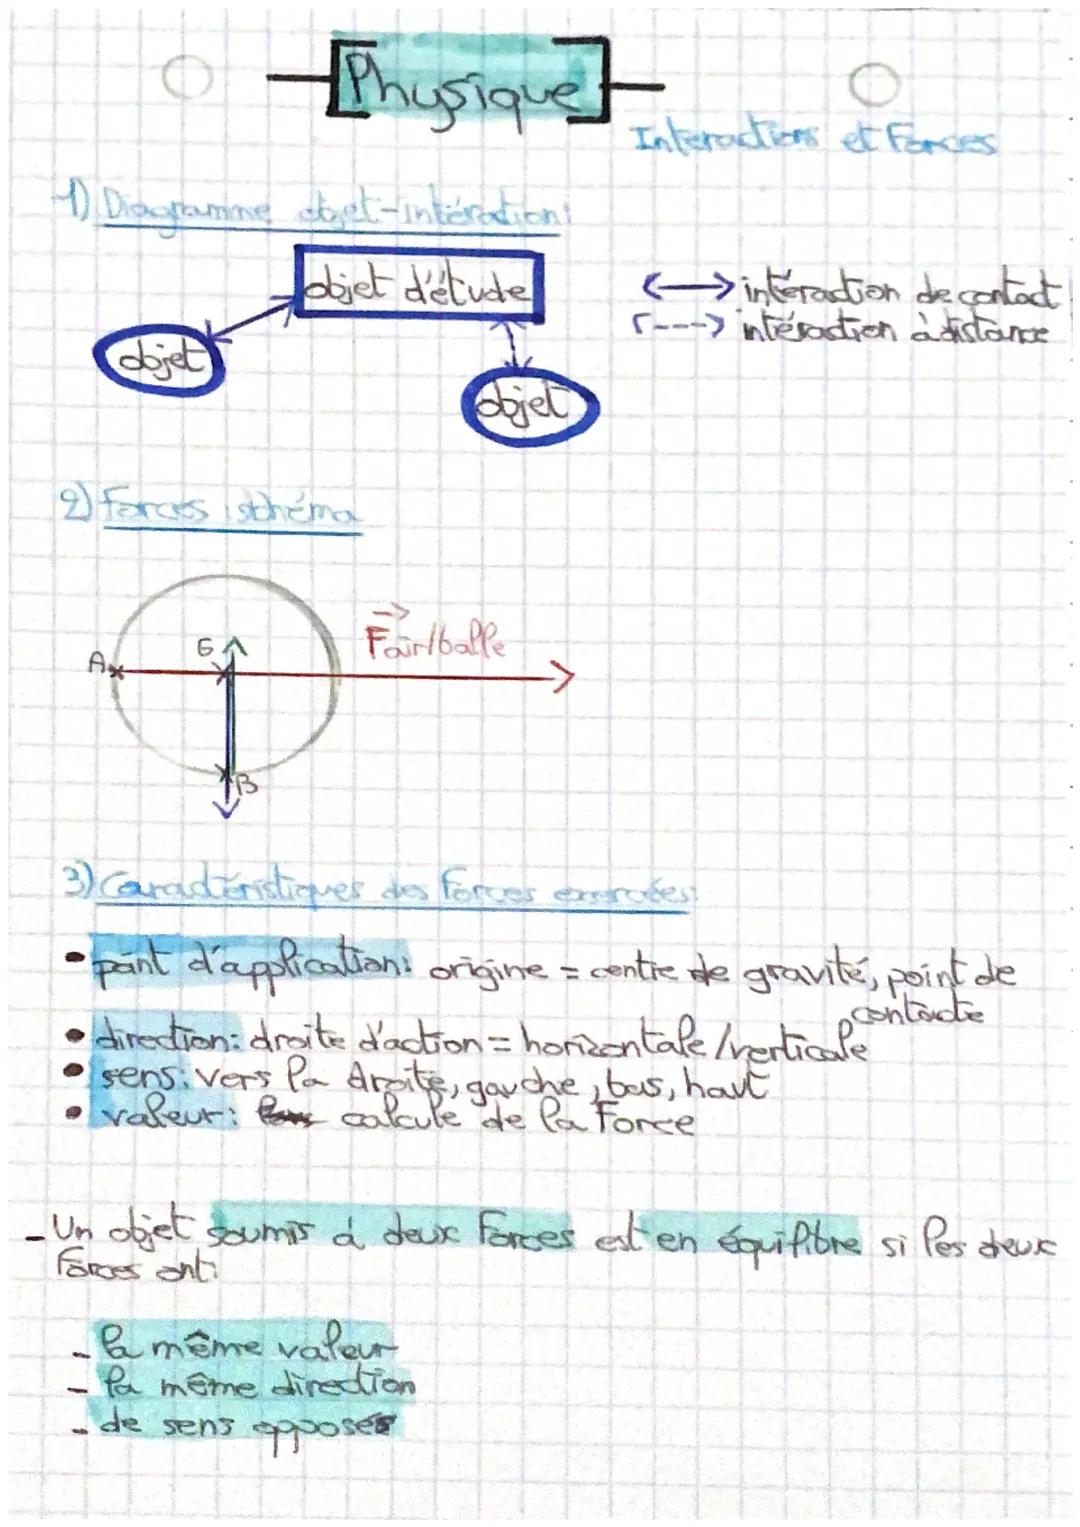 Physique
Interactions et Forces
1) Diagramme objet-intéraction:
objet d'étude
objet
objet
intéraction de contact
intéraction à distance
2) Forces schéma
A
G
F air/balle
B
3) Caractéristiques des Forces exercées:
• point d'application: origine = centre de gravité, point de
contacte
• direction: droite d'action = horizontale/verticale
• sens: vers la droite, gauche, bas, haut
• valeur: calcule de la Force
- Un objet soumis à deux Forces est en équilibre si les deux
Forces ont:
- la même valeur
- la même direction
- de sens opposés